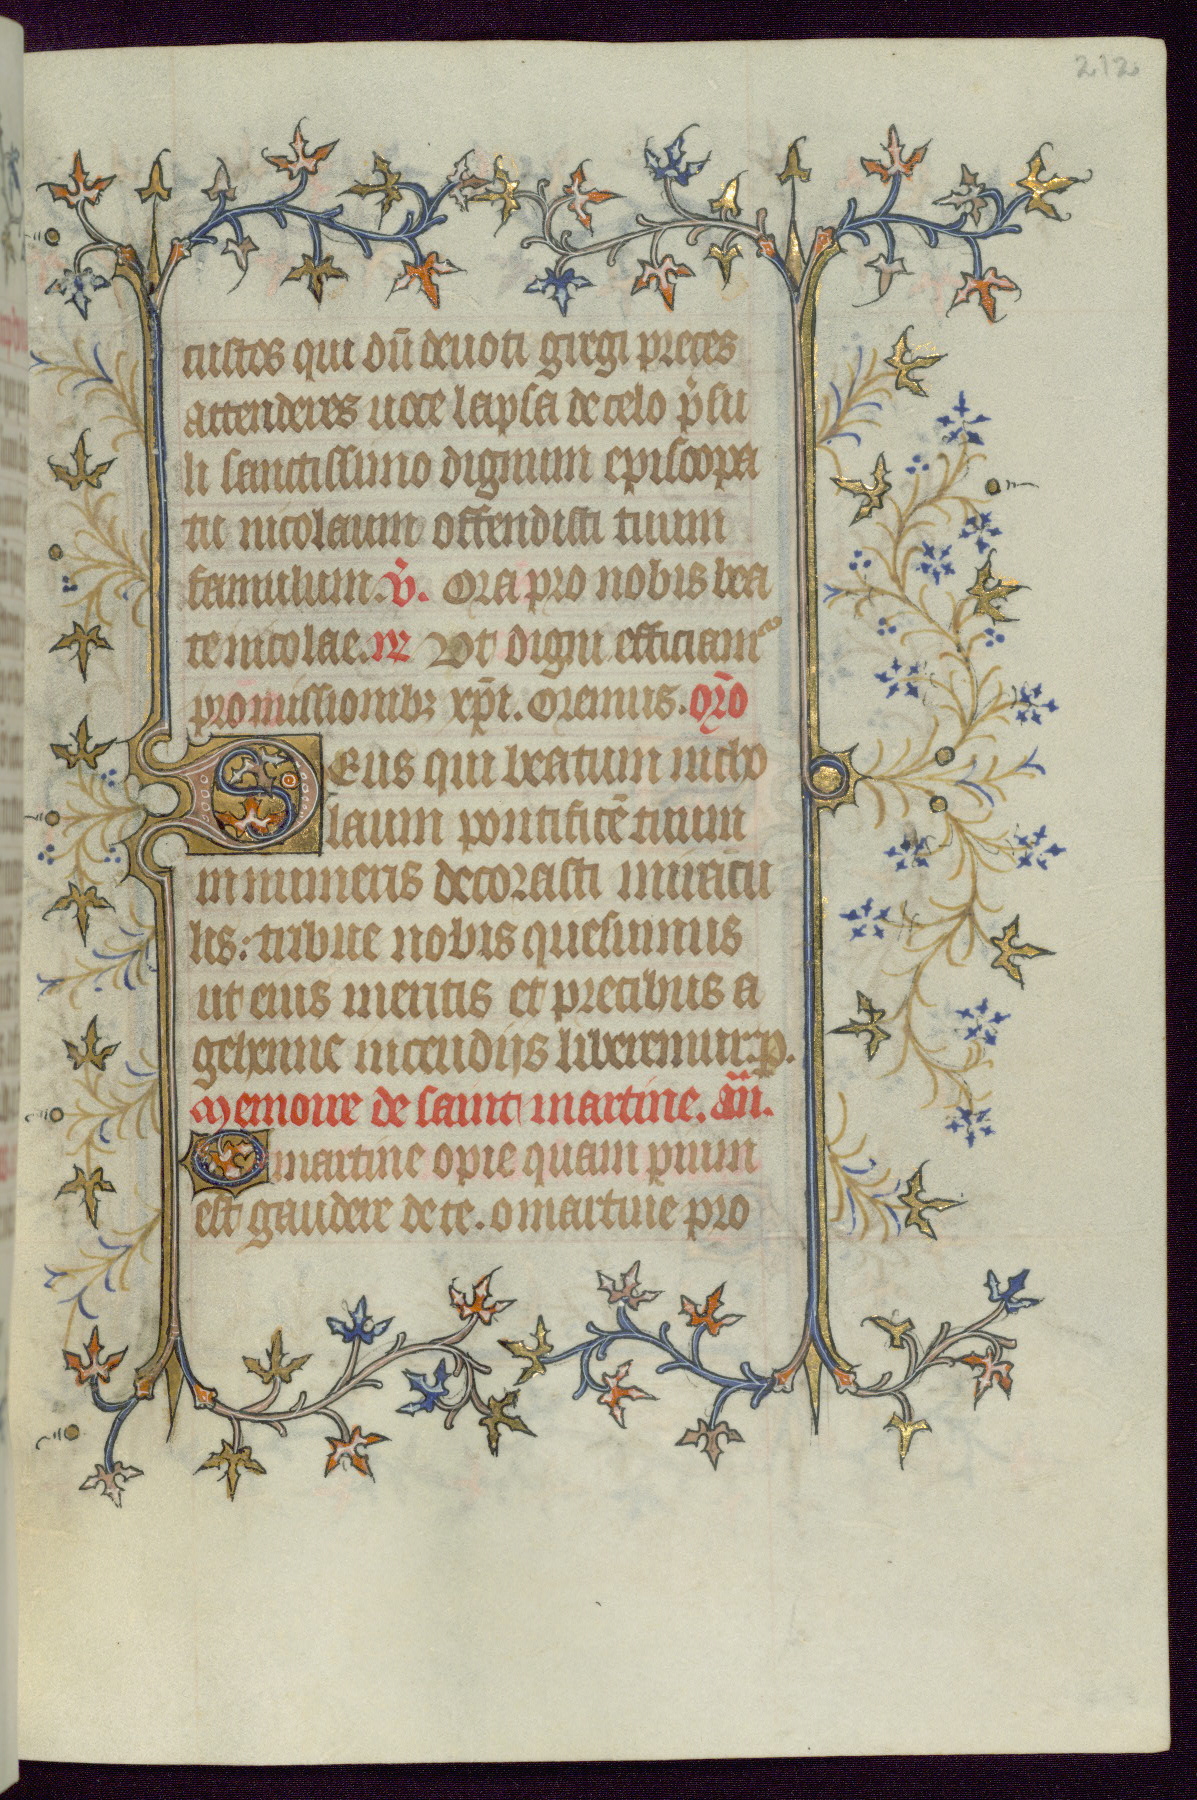 212
custos qui dū deuoti gregi preces
attenderes uoce lapsa de celo p̄su
li sanctissimo dignum episcopa
tu nicolaum ostendisti tuum
famulum. V̄. Ora pro nobis bea
te nicolae. R̄ Vt digni efficiam
promissionibꝫ xp̄i. Oremus. or̄o
Deus qui beatum nicho
laum pontificē tuum
innumeris decorasti miracu
lis: tribue nobis quesumus
ut eius meritis et precibus a
gehenne incendijs liberemur. p.
Memoire de saint martine. añ.
O martine o pie quam pium
est gaudere de te. o martine pro